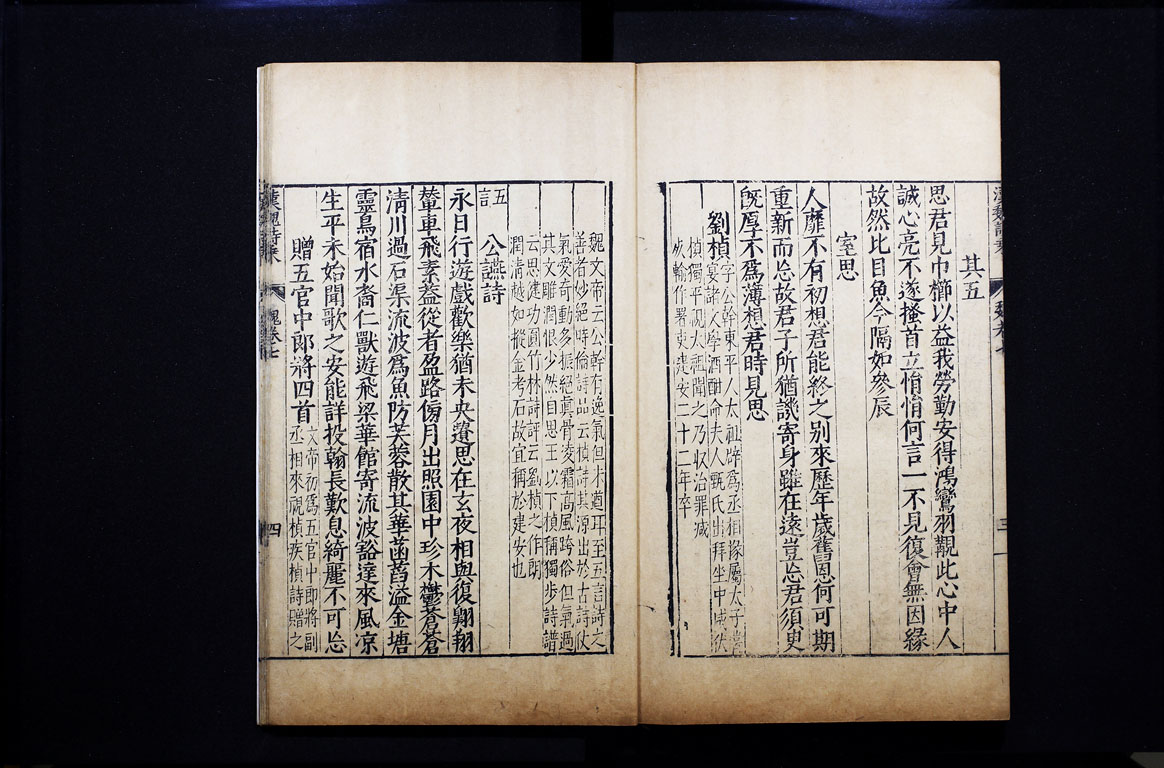 漢魏詩乘
魏卷七
三
其五
思君見巾櫛以益我勞勤安得鴻鸞羽觀此心中人
誠心亮不遂搔首立悁悁何言一不見復會無因緣
故然比目魚今隔如參辰
室思
人靡不有初想君能終之别來歷年歲舊恩何可期
重新而忘故君子所猶譏寄身雖在遠豈忘君須臾
旣厚不爲薄想君時見思
劉楨
字公幹東平人太祖辟爲丞相掾屬太子嘗
宴諸文學酒酣命夫人甄氏出拜坐中咸伏
楨獨平視太祖聞之乃収治罪減
死輸作署吏建安二十二年卒
魏文帝云公幹有逸氣但未遒耳至五言詩之
善者妙絕時倫詩品云楨詩其源出於古詩仗
氣愛奇動多振絕眞骨凌霜高風跨俗但氣過
其文雕潤恨少然自思王以下楨稱獨步詩譜
云思健功圓竹林詩評云劉楨之作朗
潤清越如摐金考石故宜稱於建安也
五言
公讌詩
永日行遊戲歡樂猶未央遺思在玄夜相與復翺翔
輦車飛素葢從者盈路傍月出照園中珍木鬱蒼蒼
清川過石渠流波爲魚防芙蓉散其華菡萏溢金塘
靈鳥宿水裔仁獸遊飛梁華館寄流波豁達來風凉
生平未始聞歌之安能詳投翰長歎息綺麗不可忘
贈五官中郎將四首
文帝初爲五官中郎將副
丞相來視楨疾楨詩贈之
漢魏詩乘
魏卷七
四